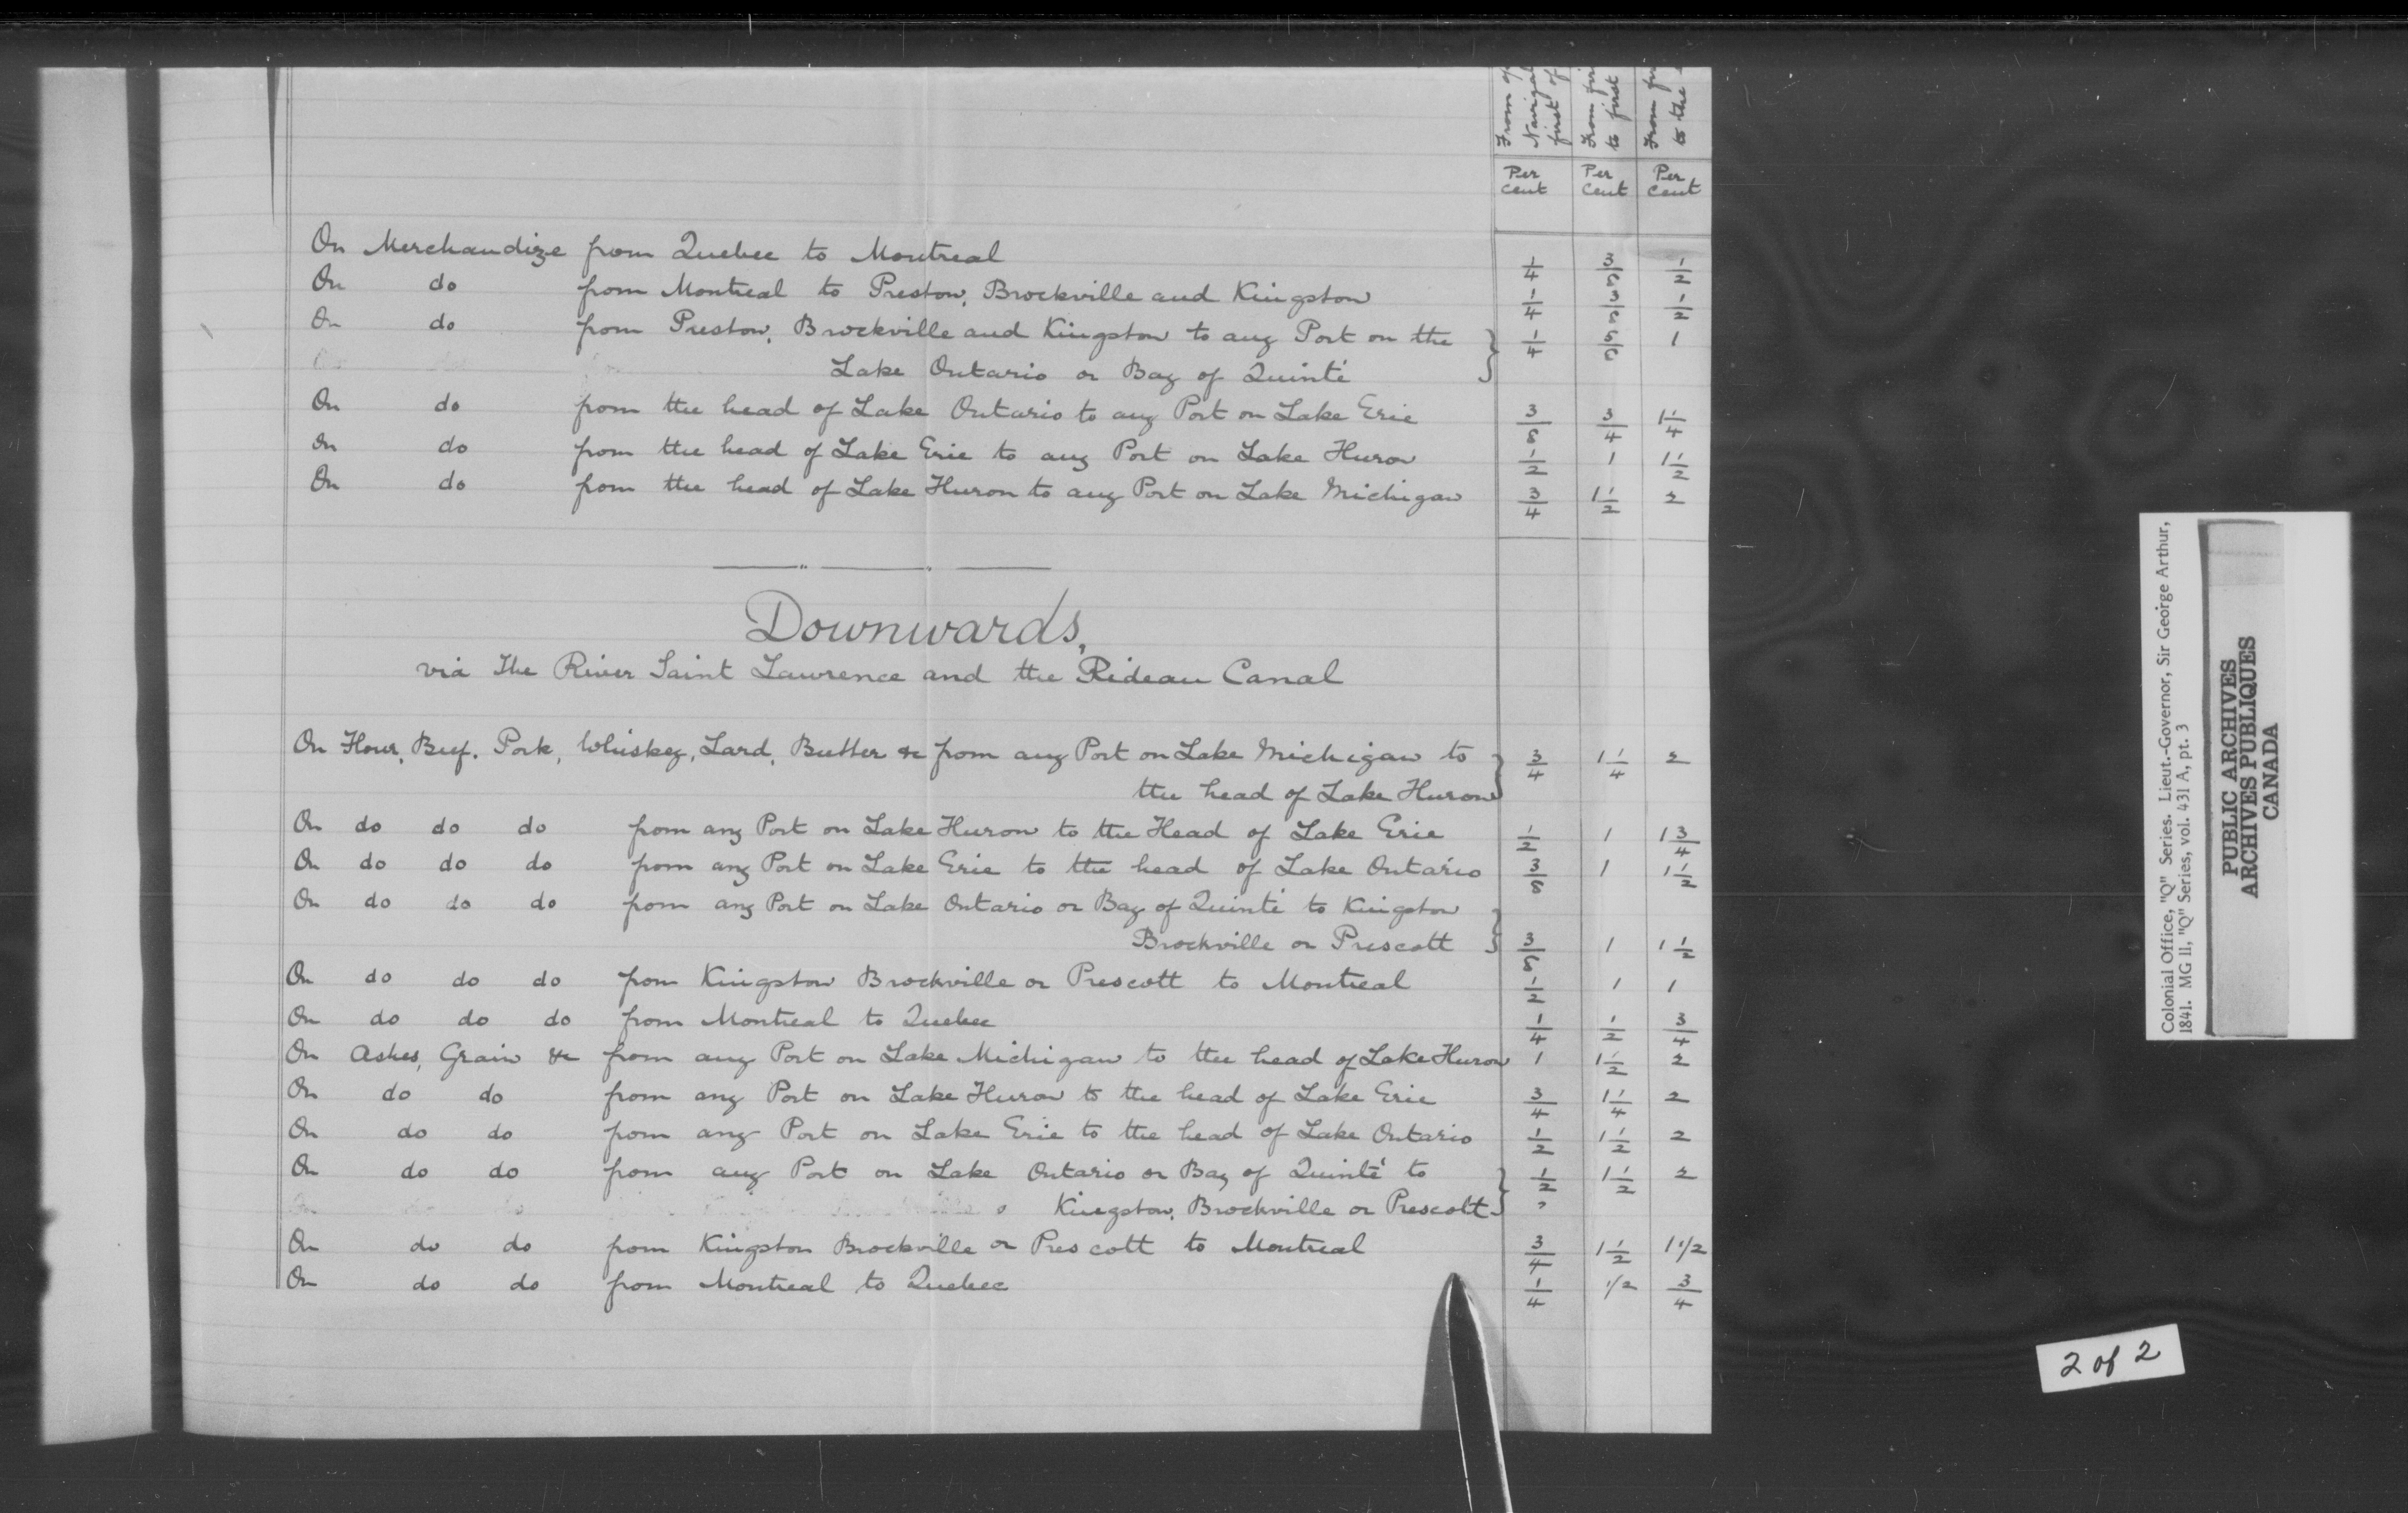 From
Navigat
first of
From fir
to first
From fir
to the
Per cent Per cent Per cent
On Merchandize from Quebec to Montreal 1/4 3/8 1/2
On do from Montreal to Preston, Brockville and Kingston 1/4 3/8 1/2
On do from Preston, Brockville and Kingston to any Port on the } 1/4 5/8 1
Lake Ontario or Bay of Quinté
On do from the head of Lake Ontario to any Port on Lake Erie 3/8 3/4 1 1/4
On do from the head of Lake Erie to any Port on Lake Huron 1/2 1 1 1/2
On do from the head of Lake Huron to any Port on Lake Michigan 3/4 1 1/2 2
Downwards,
via The River Saint Lawrence and the Rideau Canal
On Flour, Beef. Pork, Whiskey, Lard, Butter &c from any Port on Lake Michigan to } 3/4 1 1/4 2
the head of Lake Huron
On do do do from any Port on Lake Huron to the Head of Lake Erie 1/2 1 1 3/4
On do do do from any Port on Lake Erie to the head of Lake Ontario 3/8 1 1 1/2
On do do do from any Port on Lake Ontario or Bay of Quinté to Kingston }
Brockville or Prescott 3/8 1 1 1/2
On do do do from Kingston Brockville or Prescott to Montreal 1/2 1 1
On do do do from Montreal to Quebec 1/4 1/2 3/4
On Ashes, Grain &c from any Port on Lake Michigan to the head of Lake Huron 1 1 1/2 2
On do do from any Port on Lake Huron to the head of Lake Erie 3/4 1 1/4 2
On do do from any Port on Lake Erie to the head of Lake Ontario 1/2 1 1/2 2
On do do from any Port on Lake Ontario or Bay of Quinté to } 1/2 1 1/2 2
Kingston, Brockville or Prescott
On do do from Kingston Brockville or Prescott to Montreal 3/4 1 1/2 1 1/2
On do do from Montreal to Quebec 1/4 1/2 3/4
Colonial Office, "Q" Series. Lieut.-Governor, Sir George Arthur,
1841. MG 11, "Q" Series, vol. 431 A, pt. 3
PUBLIC ARCHIVES
ARCHIVES PUBLIQUES
CANADA
2 of 2